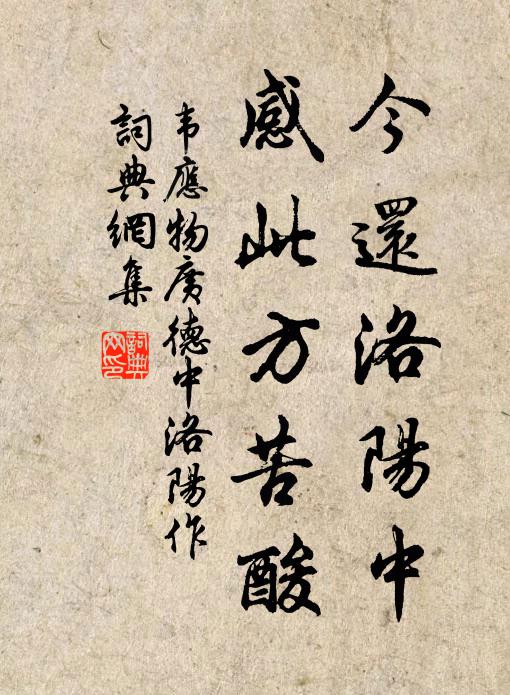 今還洛陽中
感此方苦酸
韦應物廣德中洛陽作
詞典網集
詞典网印